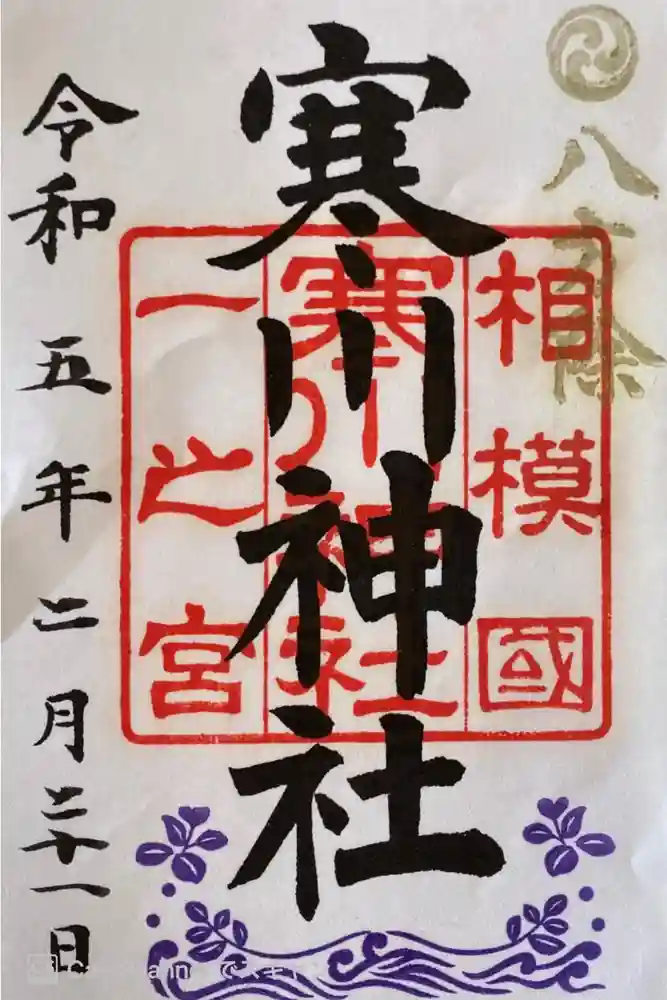 八方除
相模國
寒川神社
寒川神社
一之宮
令和五年二月二十一日